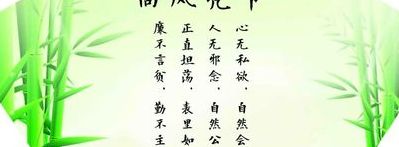 高风亮节
心无私欲，自然会
人无邪念，自然公
正直坦荡，表里如
廉不言贫，勤不